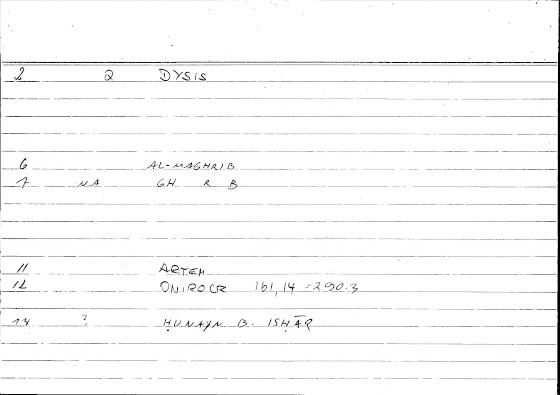 2 Q DYSIS
6 AL-MAGHRIB
7 NA GH R B
11 ARTEM
12 ONIROCR 161,14 = 290.3
14 ? ḤUNAYN B. ISḤĀQ